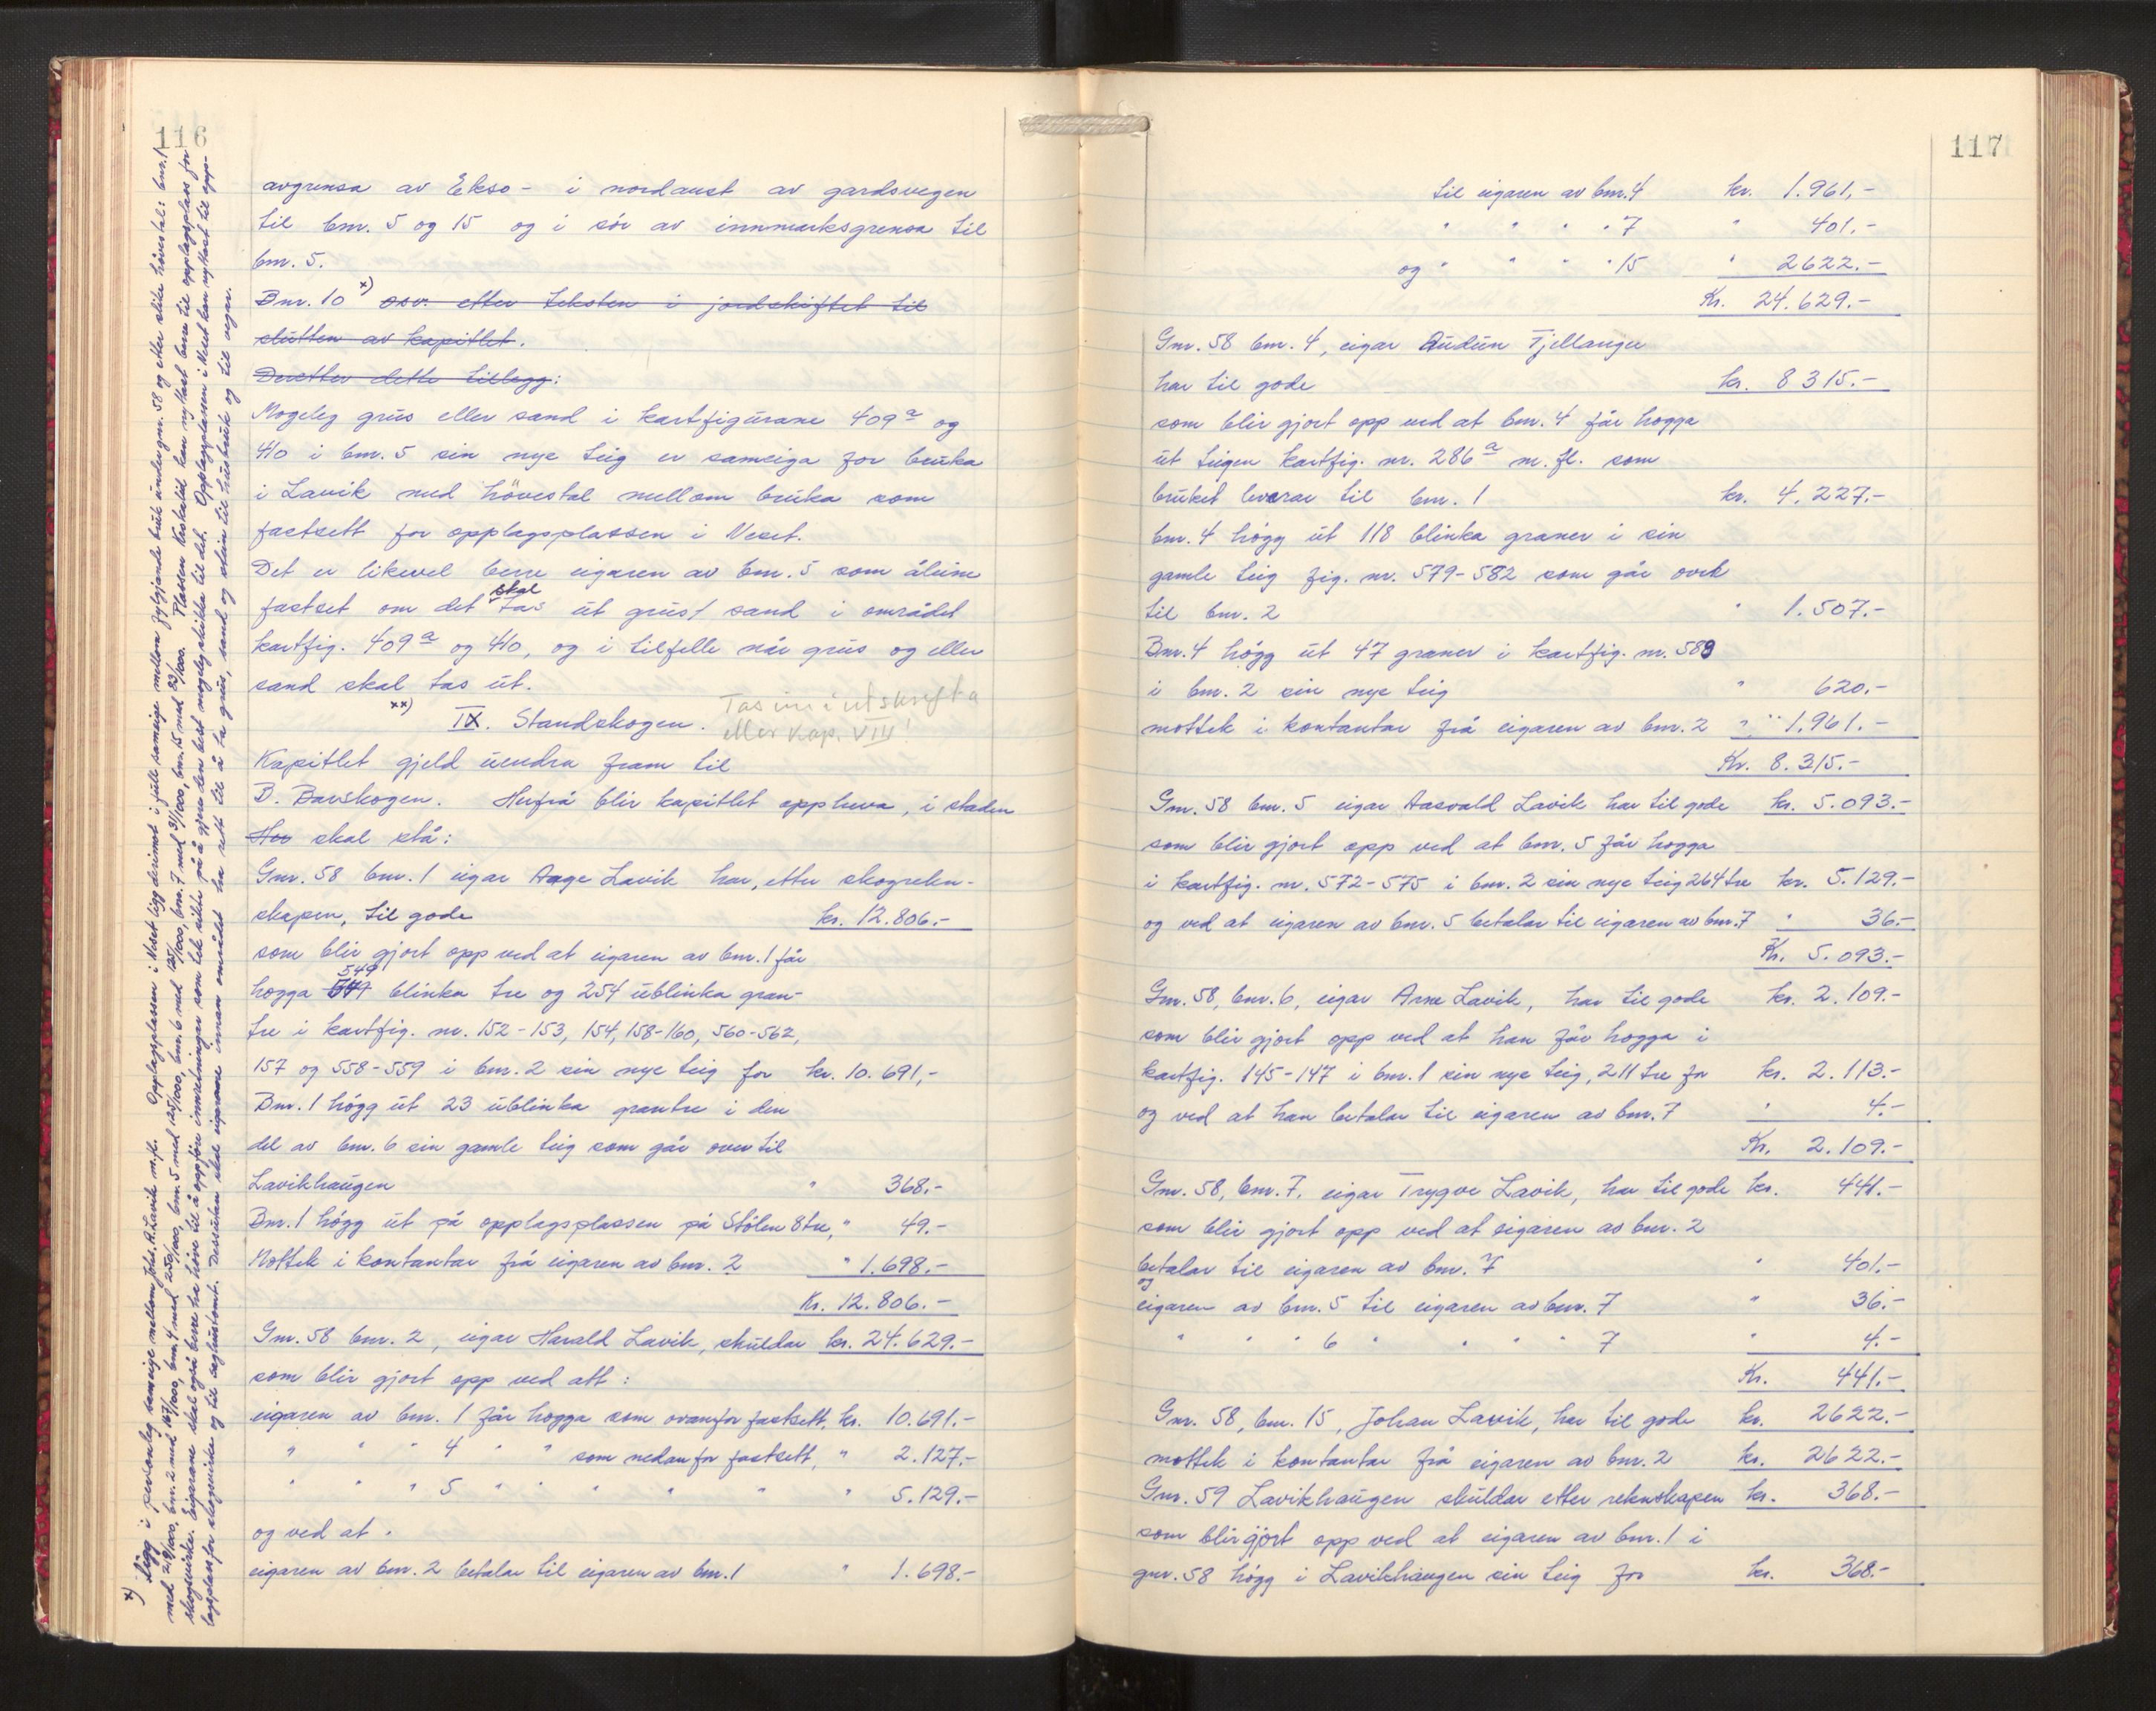 116
avgrensa av Ekso - i nordaust av gardsvegen
til bnr. 5 og 15 og i sör av innmarksgrensa til
bnr. 5.
Bnr. 10 x) osv. etter teksten i jordskiftet til
slutten av kapitlet.
Deretter dette tillegg:
Mogeleg grus eller sand i kartfigurane 409a og
410 i bnr. 5 sin nye teig er sameiga for bruka
i Lavik med hövestal mellom bruka som
fastsett for opplagsplassen i Neset.
Det er likevel berre eigaren av bnr. 5 som åleine
fastset om det skal tas ut grus/ sand i området
kartfig. 409a og 410, og i tilfelle når grus og eller
sand skal tas ut.
xx)
IX. Standskogen.
Tas inn i utskrifta
eller Kap. VIII!
Kapitlet gjeld uendra fram til
B. Barskogen. Herfrå blir kapitlet oppheva, i staden
Her skal stå:
Gnr. 58 bnr. 1 eigar Aage Lavik har, etter skogrekn-
skapen, til gode kr. 12.806.-
som blir gjort opp ved at eigaren av bnr. 1 får
hogga 549 blinka tre og 254 ublinka gran-
tre i kartfig. nr. 152-153, 154, 158-160, 560-562,
157 og 558-559 i bnr. 2 sin nye teig for kr. 10.691,-
Bnr. 1 högg ut 23 ublinka grantre i den
del av bnr. 6 sin gamle teig som går over til
Lavikhaugen " 368.-
Bnr. 1 högg ut på opplagsplassen på Stölen 8 tre, " 49.-
Mottek i kontantar frå eigaren av bnr. 2 " 1.698.-
Kr. 12.806.-
Gnr. 58 bnr. 2, eigar Harald Lavik, skuldar kr. 24.629.-
som blir gjort opp ved att:
eigaren av bnr. 1 får hogga som ovanfor fastsett, kr. 10.691.-
" " " 4 " " som nedanfor fastsett, " 2.127.-
" " " 5 " " " " " " 5.129.-
og ved at.
eigaren av bnr. 2 betalar til eigaren av bnr. 1 " 1.698.-
x) Ligg i personleg sameige mellom Johs. A. Lavik m.fl. Opplagsplassen i Neset ligg derimot i jalle sameige mellom fylgjande bruk under gnr. 58 og etter slike hövestal: bnr. 1
med 219/1000, bnr. 2 med 167/1000, bnr. 4 med 250/1000, bnr. 5 med 125/1000, bnr. 6 med 125/1000, bnr. 7 med 31/1000, bnr. 15 med 83/1000. Plassen kan nyttast berre til opplagsplass for
skogsvirke. Eigarane skal også berre ha höve til å oppföre innretningar som tek sikte på å gjere den best mogeleg skikka til det. Opplagsplassen i Neset kan nyttast til opp-
lagsplass for skogsvirke og til sagtustomt. Dessutan skal eigarane innan området ha rett til å ta grus, sand og stein til husbruk og til vegar.
117
til eigaren av bnr. 4 kr. 1.961,-
" " " " 7 " 401.-
og " " " " 15 " 2622.-
Kr. 24.629.-
Gnr. 58 bnr. 4, eigar Audun Fjellanger
har til gode kr. 8315.-
som blir gjort opp ved at bnr. 4 får hogga
ut teigen kartfig. nr. 286a m. fl. som
bruket leverar til bnr. 1 kr. 4.227.-
bnr. 4 högg ut 118 blinka graner i sin
gamle teig fig. nr. 579-582 som går over
til bnr. 2 " 1.507.-
Bnr. 4 högg ut 47 graner i kartfig. nr. 589
i bnr. 2 sin nye teig " 620,-
mottek i kontantar frå eigaren av bnr. 2 " 1.961.-
Kr. 8.315.-
Gnr. 58 bnr. 5 eigar Aasvald Lavik har til gode kr. 5.093.-
som blir gjort opp ved at bnr. 5 får hogga
i kartfig. nr. 572-575 i bnr. 2 sin nye teig 264 tre kr. 5.129.-
og ved at eigaren av bnr. 5 betalar til eigaren av bnr. 7 " 36.-
Kr. 5.093.-
Gnr. 58, bnr. 6, eigar Arne Lavik, har til gode kr. 2.109.-
som blir gjort opp ved at han får hogga i
kartfig. 145-147 i bnr. 1 sin nye teig, 211 tre for kr. 2.113.-
og ved at han betalar til eigaren av bnr. 7 " 4.-
Kr. 2.109.-
Gnr. 58, bnr. 7, eigar Trygve Lavik, har til gode kr. 441.-
som blir gjort opp ved at eigaren av bnr. 2
betalar til eigaren av bnr. 7 " 401.-
og
eigaren av bnr. 5 til eigaren av bnr. 7 " 36.-
" " " 6 " " " " 7 " 4.-
Kr. 441.-
Gnr. 58, bnr. 15, Johan Lavik, har til gode kr. 2622.-
mottek i kontantar frå eigaren av bnr. 2 kr. 2622.-
Gnr. 59 Lavikhaugen skuldar etter reknskapen kr. 368.-
som blir gjort opp ved at eigaren av bnr. 1 i
gnr. 58 högg i Lavikhaugen sin teig for kr. 368.-